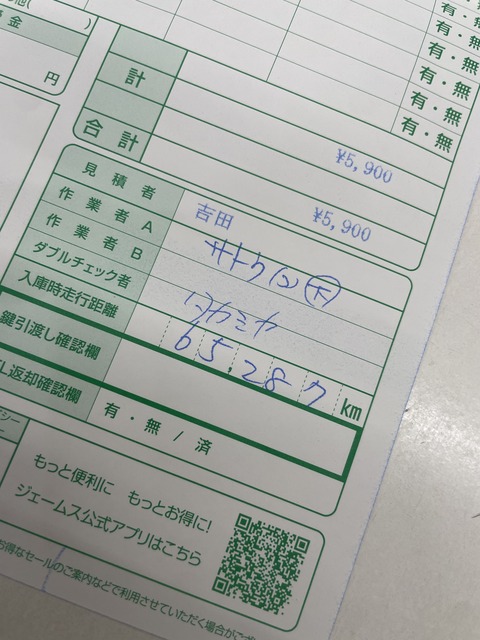 有・無
有・無
有・無
有・無
有・無
有・無
金
円
計 ¥5,900
合計 ¥5,900
見積者 吉田
作業者A サトウ
作業者B
ダブルチェック者 ワカミヤ
入庫時走行距離 65,287 km
鍵引渡し確認欄
返却確認欄 有・無/済
もっと便利に もっとお得に!
ジェームス公式アプリはこちら
お得なセールのご案内などで利用させていただく場合がござ